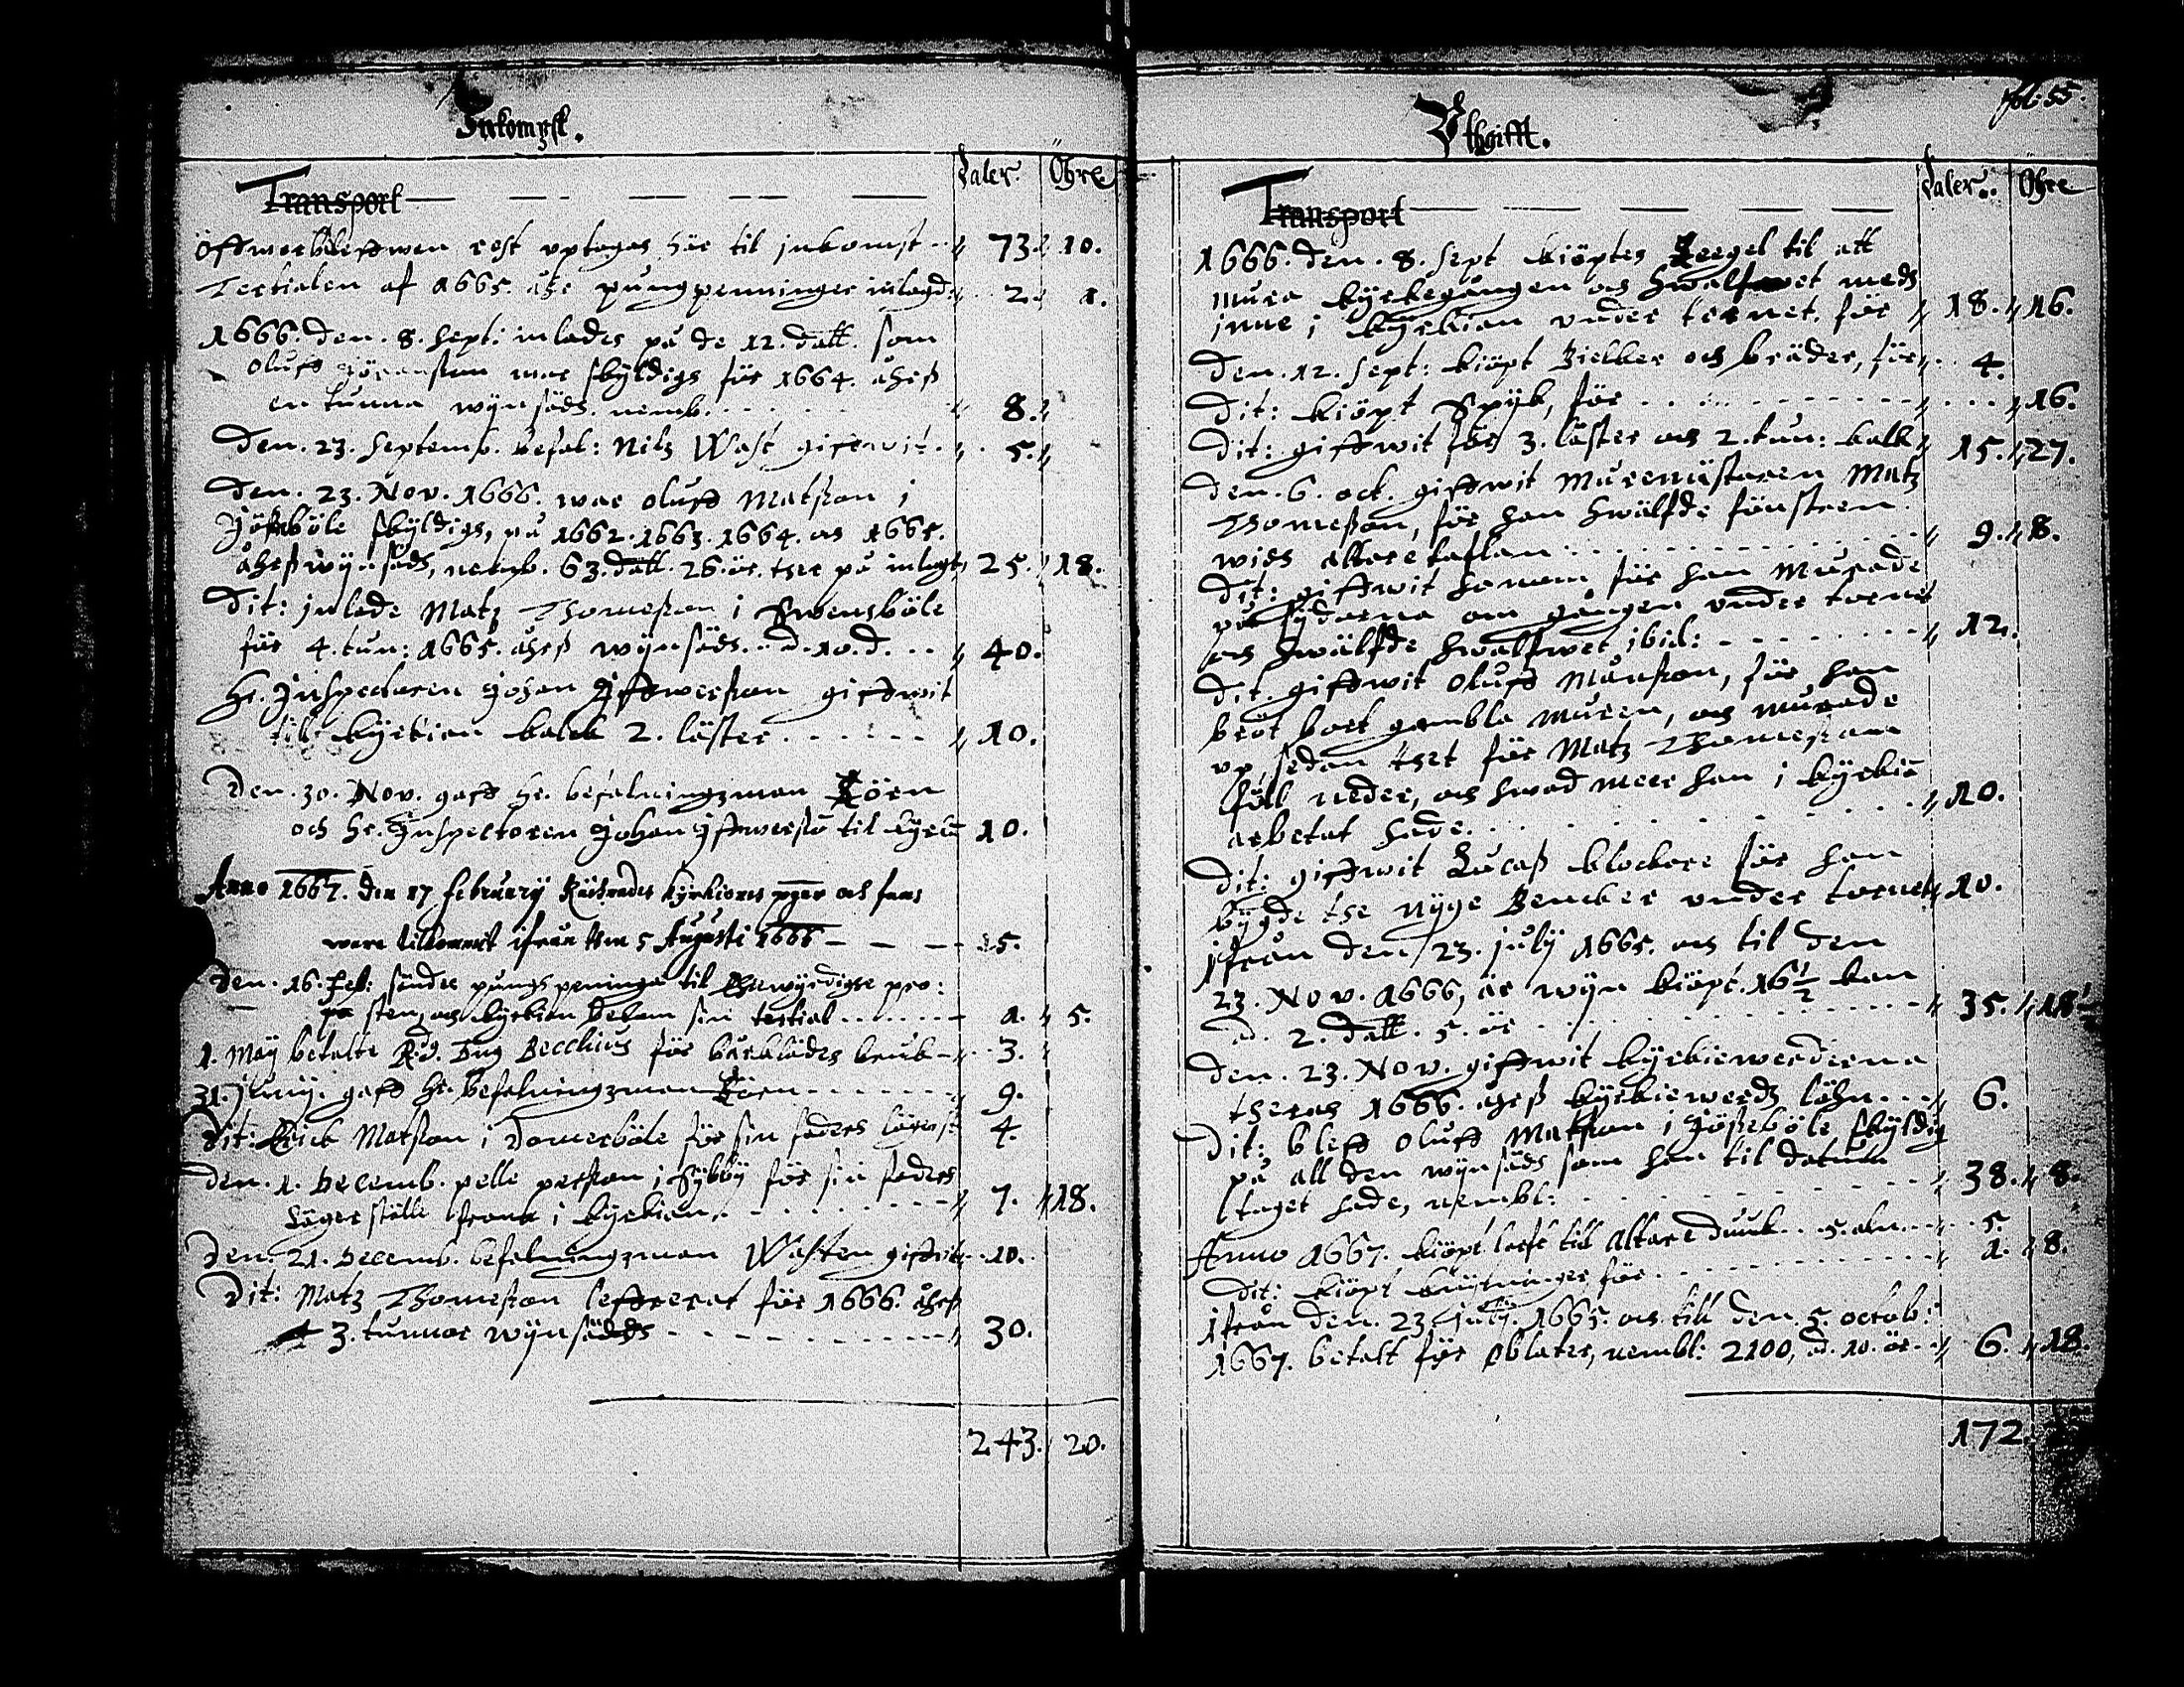 Inkompst.
Daler. Öhre
Transport
Öffwerbleffwen rest vptages här til inkomst 73. 10.
Tertialen af 1665 åhrs pungpenninger inlagd 2. 1.
1666. den. 8. Sept: inlades på de 12. dall. som
Oluff Jöranson war skyldigh för 1664. åhrß
en tunna wijnsädh. nemb. 8.
Den. 23. Septemb. befal: Nils Wast gifwit 5.
Den. 23. Nov. 1666. war Oluff Matzson i
skyldigh, på 1662. 1663. 1664. och 1665.
åhrß wijnsädh, nemb. 63. dall. 26. ör. ther på inlagt 25. 18.
Dit: inlade Matz Thomeßon i Swensböle
för 4. tun: 1665. åhrß wijnsädh. d. 10. d. 40.
Hr. Inspectoren Johan giffwit
til kyrkian kalck 2. läster 10.
Den. 30. Nov. gaff hr. befalningzman
och hr. Inspectoren Johan til kyrkian 10.
Anno 1667. den 17 February kyrkiones och fans
ware tillkommit ifrån then 5 Augusti 1666 5.
Den. 16. Feb: sändes pungpeninga til Ehrwyrdige pro:
sten, och kyrkian bekom sin tertial 1. 5.
1. Maij betalte för bårklädes bruk 3.
31. Junij. gaff hr. befalningzman 9.
Dit: Erick Matzson i Domerböle för sin faders lägerst 4.
Den. 1. Decemb. pelle perßon i Sybby för sin faders
lägerställe i kyrkian 7. 18.
Den. 21. Decemb. befalningzman Wasten gifwit 10.
Dit: Matz Thomeßon lefrerat för 1666. åhrß
3. tunnor wijnsädh 30.
243. 20.
Vthgifft.
fol: 55.
Daler. Öhre
Transport
1666. den. 8. Sept kiöptes Teegel til att
mura kyrkegången och hwalfwet medh
inne i kyrkian vnder tornet. för 18. 16.
Den. 12. Sept: kiöpt Bielker och bräder, för 4.
Dit: kiöpt Spijk, för 16.
Dit: giffwit för 3. läster och 2. tun: kalk 15. 27.
Den. 6. Oct. giffwit Muremästaren Matz
Thomeßon, för han hwälfde fönstren
widh altaretaflan 9. 8.
Dit: giffwit honom för han Murade
på sydorna om gången vnder tornet
och hwälfde hwalfwet ibid: 12.
Dit. giffwit Oluff Månßon, för han
bröt bort gambla muren, och murade
vp sedan thet för Matz Thomeßon
föll neder, och hwad meer han i kyrkian
arbetat hade. 10.
Dit: giffwit Lucaß klockare för han
bygde the nyge Bencker vnder tornet 10.
Ifrån den 23. July 1665. och til den
23. Nov. 1666, är wijn kiöpt. 16½ kan
ad. 2. dall. 5. ör 35. 18½
Den. 23. Nov. giffwit kyrkiewerderna
theras 1666. åhrß kyrkiewerdz löhn 6.
Dit: bleff Oluff Matßon i skyldig
på all den wijnsädh som han til datum
taget hade, nembl: 38. 8.
Anno 1667. kiöpt till Altare duuk. 5. aln 5.
Dit: kiöpt för 1. 8.
Ifrån den. 23. July. 1665. och till den. 5. Octob:
1667. betalt för oblater, nembl: 2100, ad. 10. ör. 6. 18.
172.